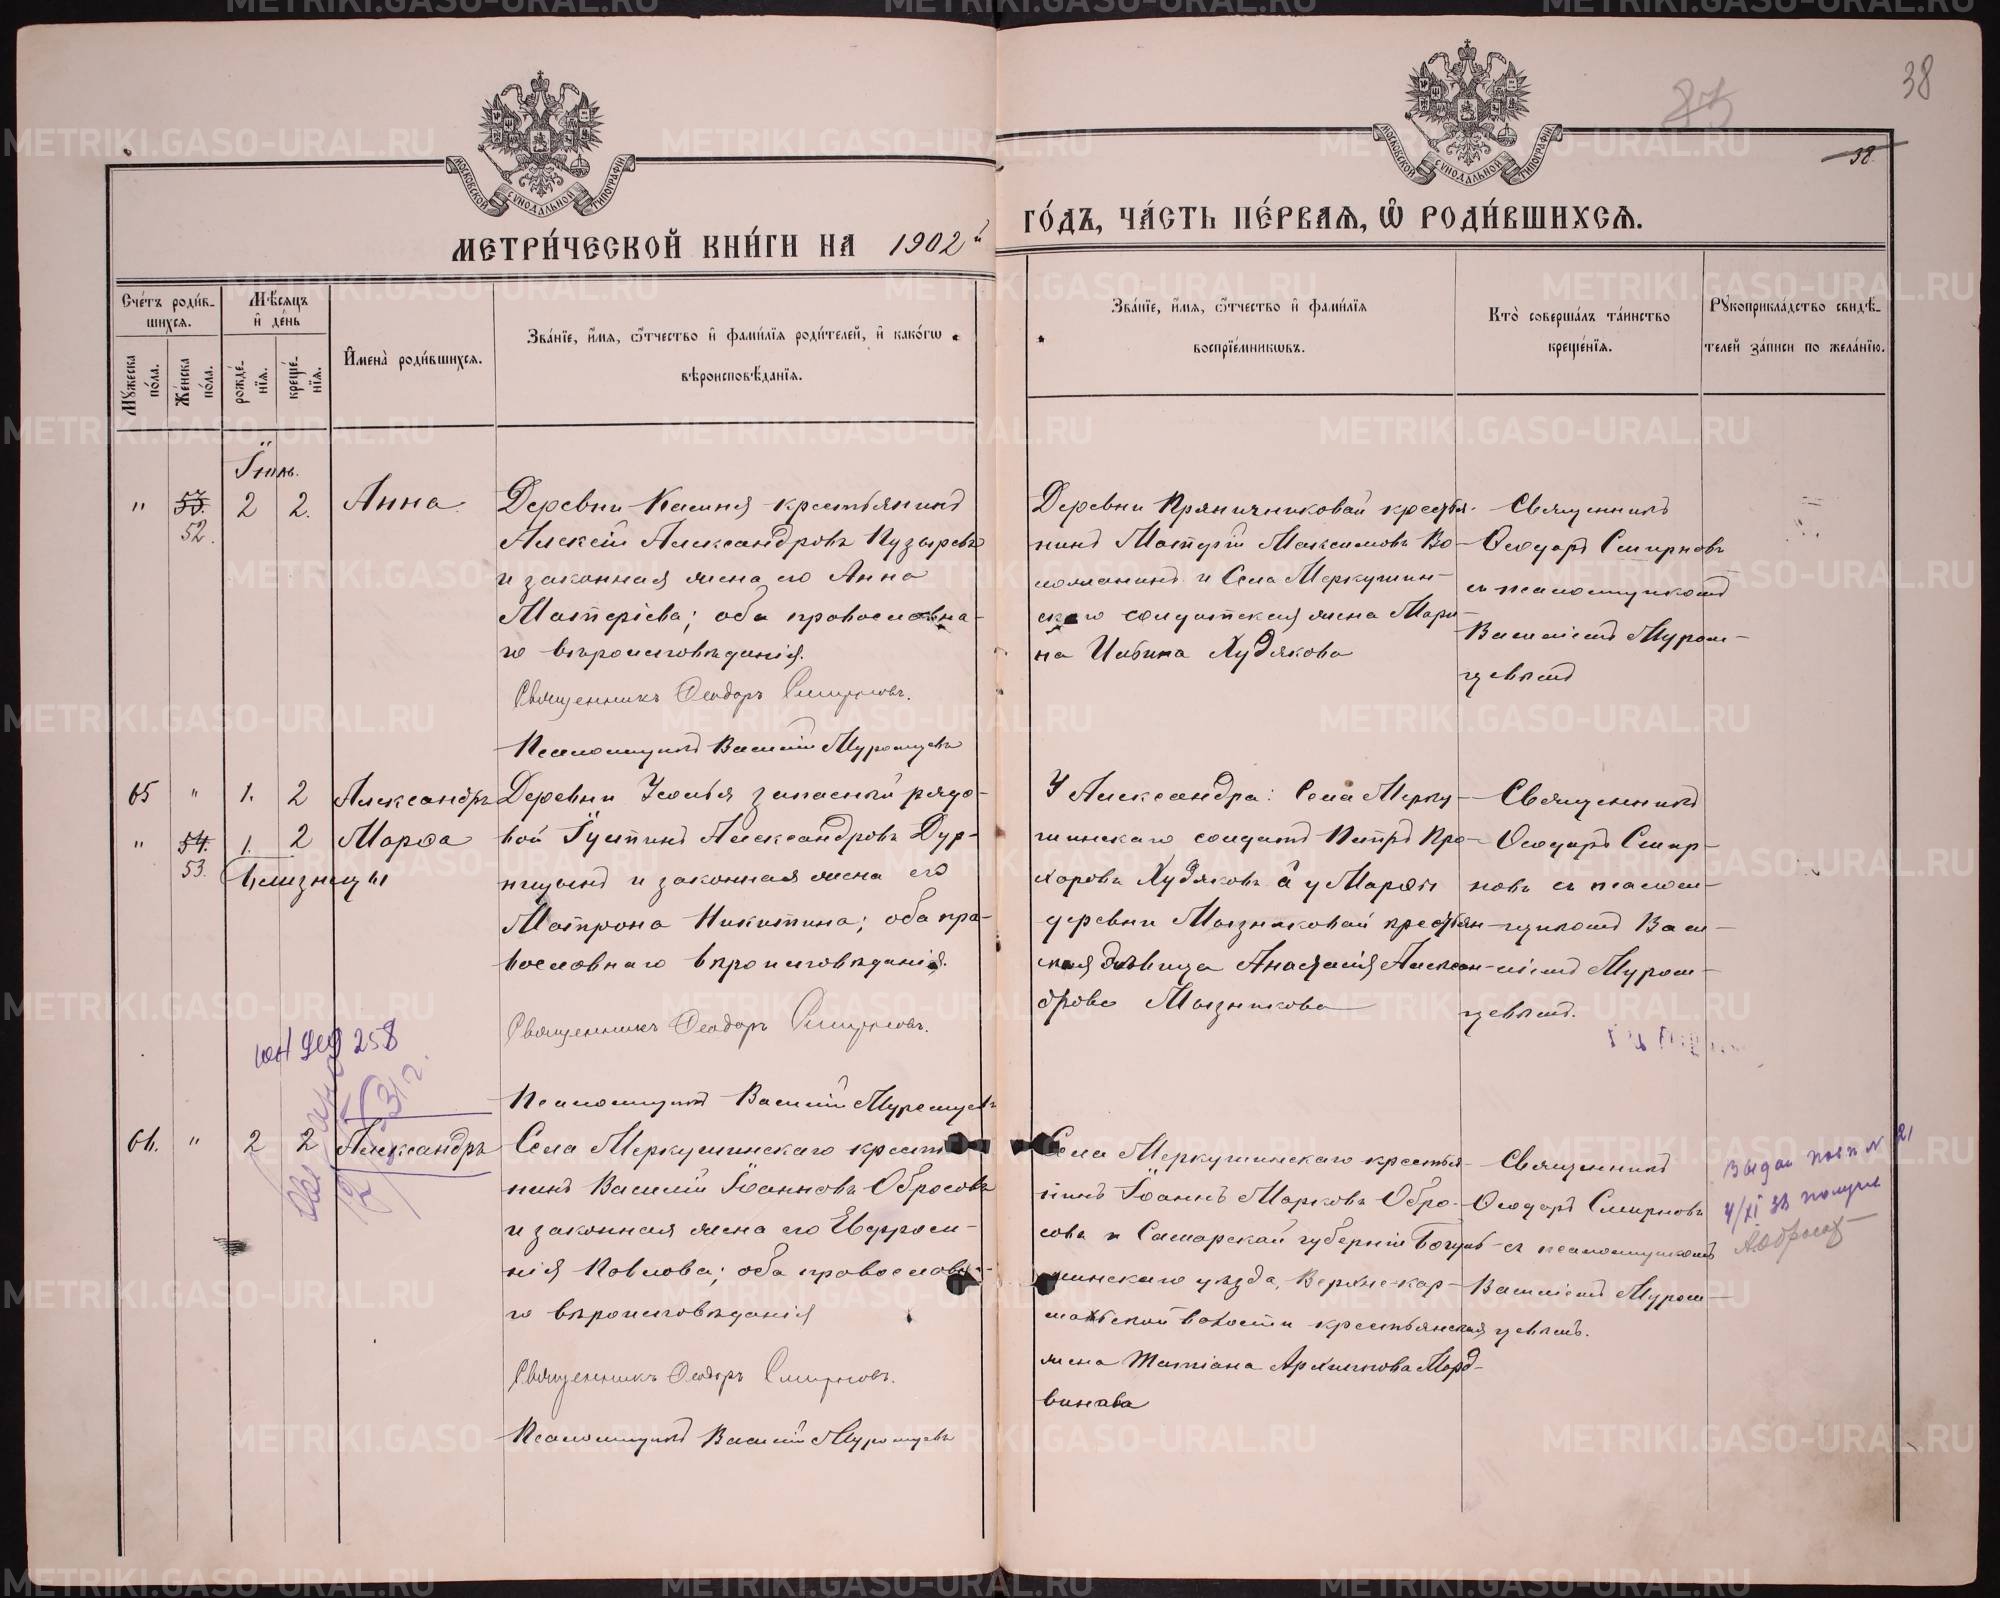 38
38
МОСКОВСКОЙ СУНОДАЛЬНОЙ ТИПОГРАФІИ
МОСКОВСКОЙ СУНОДАЛЬНОЙ ТИПОГРАФІИ
МЕТРИ́ЧЕСКОЙ КНИ́ГИ НА 1902й ГО́ДЪ, ЧА́СТЬ ПЕ́РВАѦ, Ѽ РОДИ́ВШИХСѦ.
Сче́тъ роди́в-
шихсѧ.
Му́жеска по́ла.
Же́нска по́ла.
Мѣ́сѧцъ
и де́нь
рожде́-
нїѧ.
креще́-
нїѧ.
Имена̀ роди́вшихсѧ.
Зва́нїе, и́мѧ, ѻ́тчество и фами́лїѧ роди́телей, и како́гѡ
вѣроисповѣ́данїѧ.
Зва́нїе, и́мѧ, ѻ́тчество и фами́лїѧ
воспрїе́мникѡвъ.
Кто̀ соверша́лъ та́инство
креще́нїѧ.
Рꙋкоприкла́дство свидѣ́-
телей за́писи по жела́нїю.
Іюль.
" 53. 52. 2 2. Анна
Деревни Касиня крестьянинъ
Алексій Александровъ Пузыревъ
и законная жена его Анна
Матѳеіева; оба православна-
го вѣроисповѣданія.
Священникъ Ѳеодоръ Смирновъ.
Псаломщикъ Василій Муромцевъ
Деревни Пряничниковой крестья-
нинъ Матѳій Максимовъ Во-
ломанинъ и Села Меркушин-
скаго солдатская жена Мари-
на Ильина Худякова
Священникъ
Ѳеодоръ Смирновъ
съ псаломщикомъ
Василіемъ Муром-
цевымъ
65 " 1. 2 Александръ
" 54. 53. 1. 2 Марѳа
Близнецы
Деревни Усолья запасный рядо-
вой Іустинъ Александровъ Дур-
ницынъ и законная жена его
Матрона Никитина; оба пра-
вославнаго вѣроисповѣданія.
Священникъ Ѳеодоръ Смирновъ.
Псаломщикъ Василій Муромцевъ
У Александра: Села Мерку-
шинскаго солдатъ Петръ Про-
хоровъ Худяковъ а у Марѳы
деревни Мызниковой крестьян-
ская дѣвица Анастасія Алексан-
дрова Мызникова
Священникъ
Ѳеодоръ Смир-
новъ съ псалом-
щикомъ Васи-
ліемъ Муром-
цевымъ.
258
31 г.
66. " 2 2 Александръ
Села Меркушинскаго крестья-
нинъ Василій Іоанновъ Обросовъ
и законная жена его Евфроси-
нія Павлова; оба православна-
го вѣроисповѣданія
Священникъ Ѳеодоръ Смирновъ.
Псаломщикъ Василій Муромцевъ
Села Меркушинскаго крестья-
нинъ Іоаннъ Марковъ Обро-
совъ и Самарской губерніи Бугуль-
минскаго уѣзда, Верхне-кар-
мальской волости крестьянская
жена Татіана Архипова Морд-
винова
Священникъ
Ѳеодоръ Смирновъ
съ псаломщикомъ
Василіемъ Муром-
цевымъ.
Выдан № 21
4/XI 38 получ
METRIKI.GASO-URAL.RU